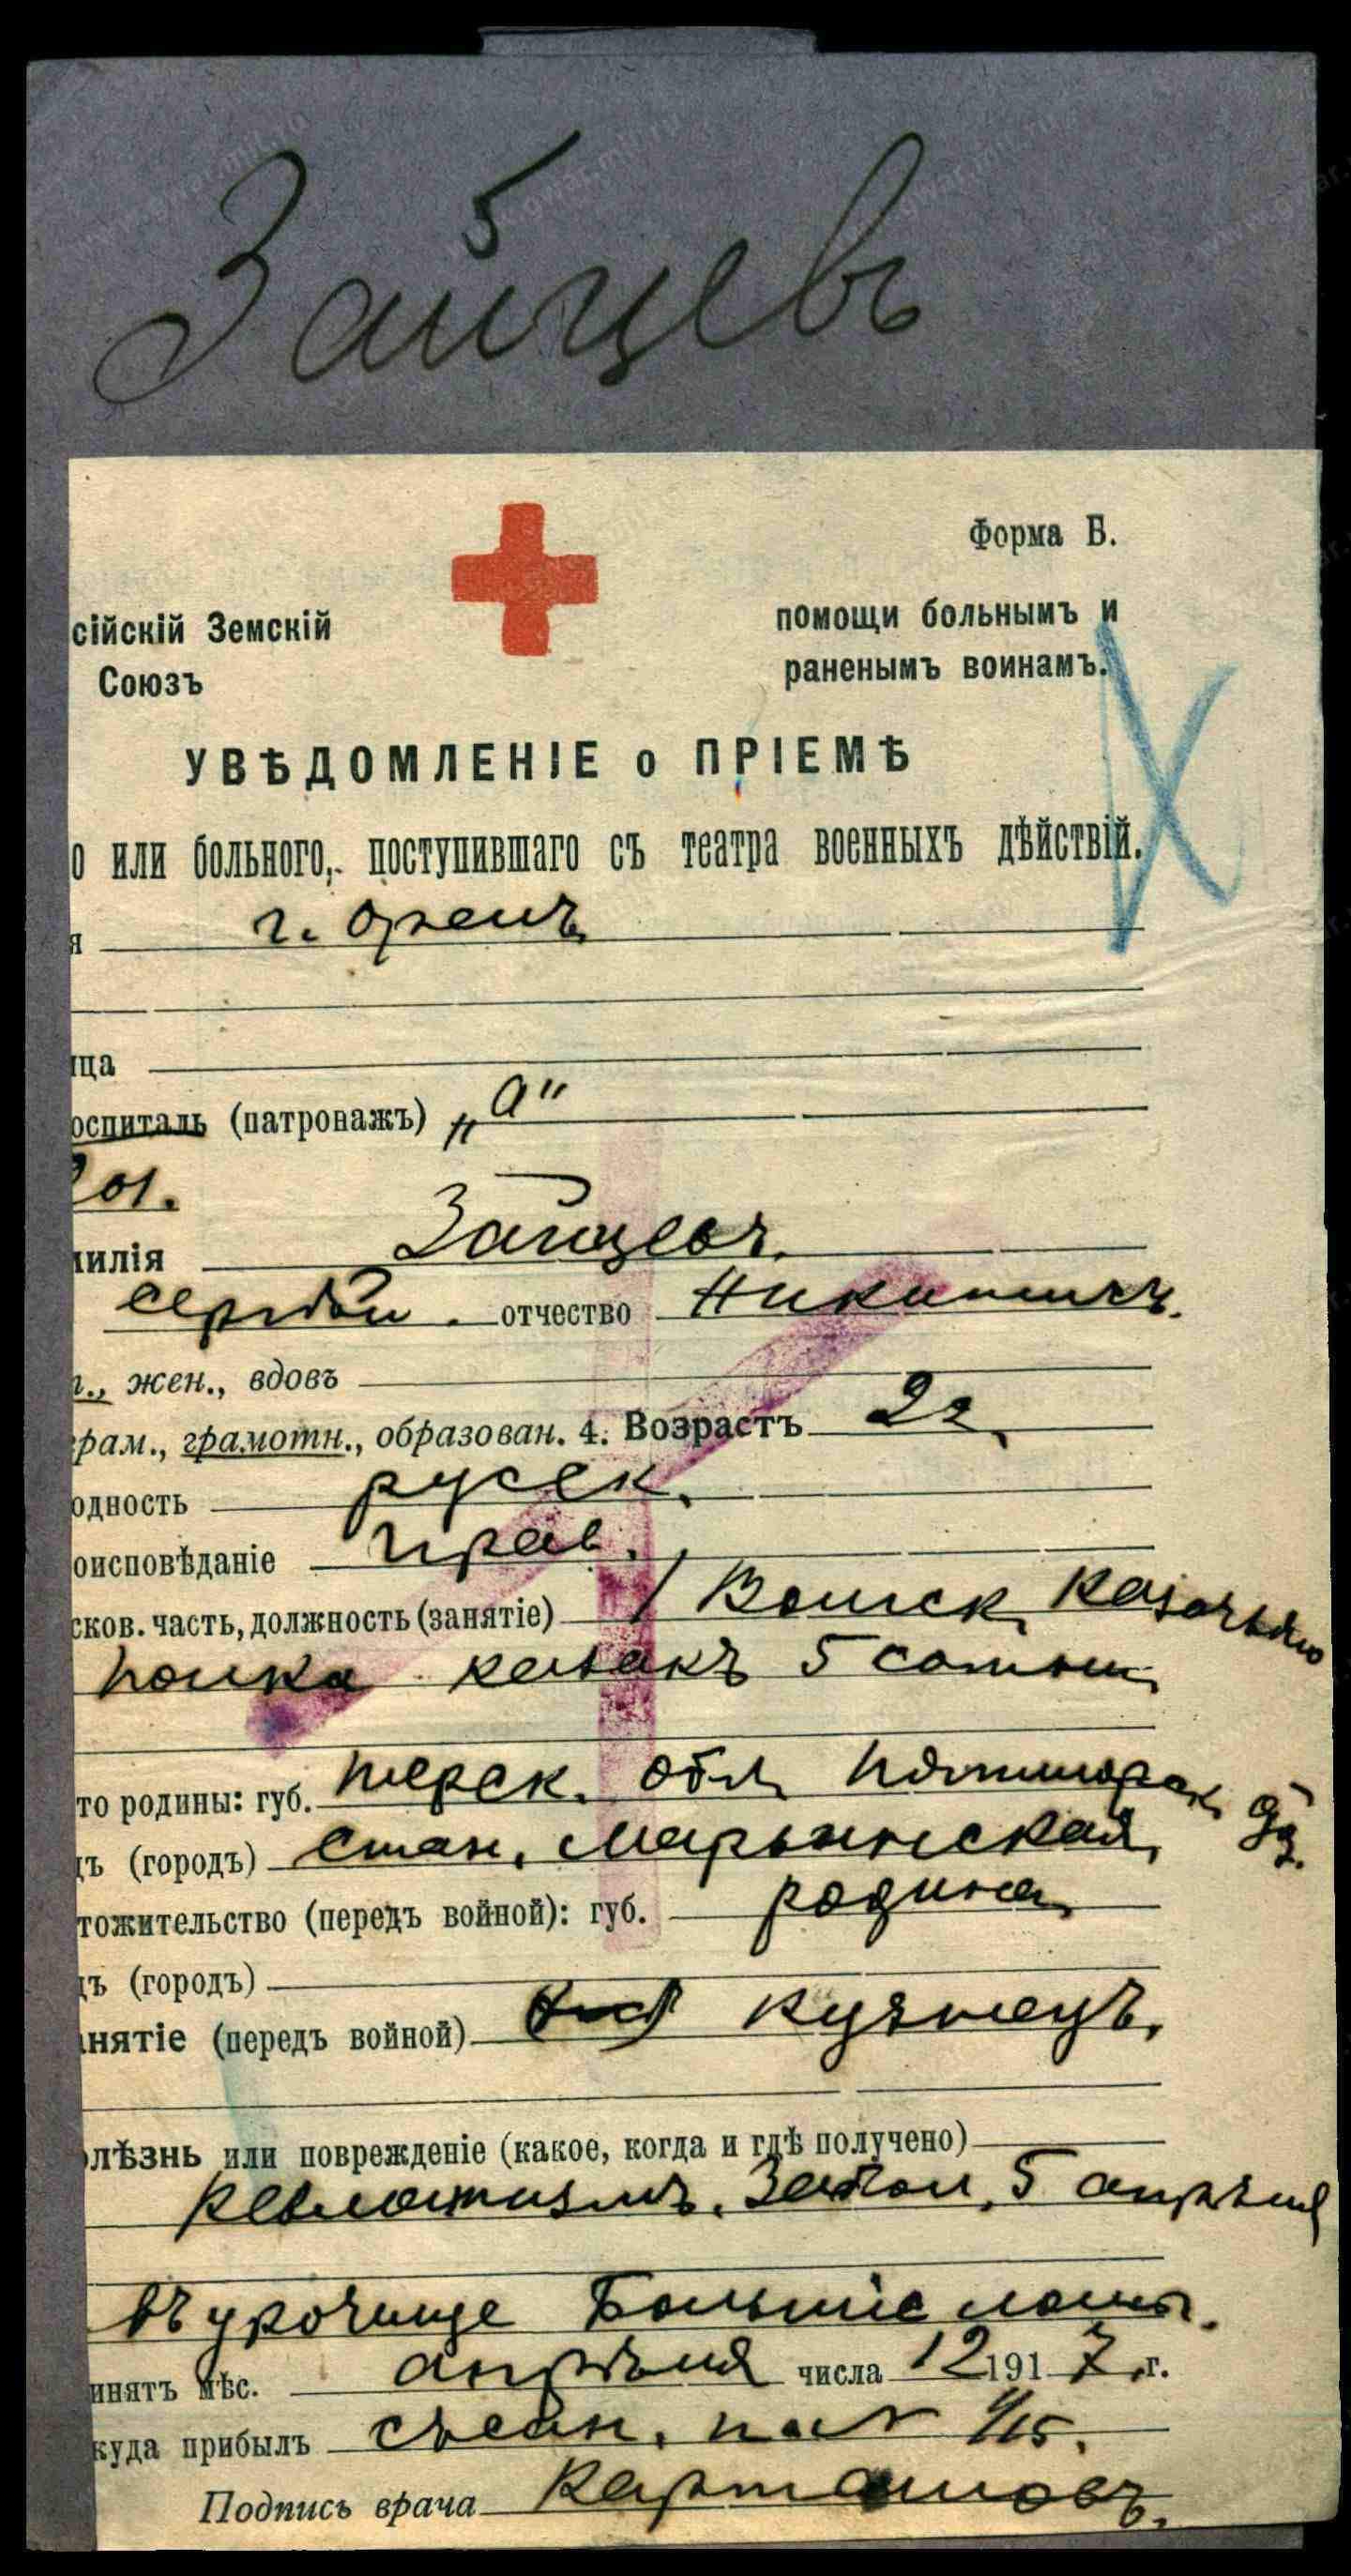 Зайцевъ
Форма Б.
сійскій Земскій
Союзъ
помощи больнымъ и
раненымъ воинамъ.
УВѢДОМЛЕНІЕ о ПРІЕМѢ
о или больного, поступившаго съ театра военныхъ дѣйствій.
я г. Орелъ
ица
оспиталь (патронажъ) „а"
201.
милія Зайцевъ.
Сергѣй. отчество Никитичъ.
т., жен., вдовъ
грам., грамотн., образован. 4. Возрастъ 22
одность русск.
оисповѣданіе прав.
сков. часть, должность (занятіе) 1 Волжск. Казачьяго
полка казакъ 5 сотни
то родины: губ. Терск. обл. Пятигорск.
дъ (городъ) стан. Марьинская,
тожительство (передъ войной): губ. родина
дъ (городъ)
анятіе (передъ войной) кузнецъ.
олѣзнь или поврежденіе (какое, когда и гдѣ получено)
Ревматизмъ. Забол. 5 апрѣля
въ урочище Большіе
инятъ мѣс. апрѣля числа 12 1917 г.
куда прибылъ съ сан. п. №
Подпись врача